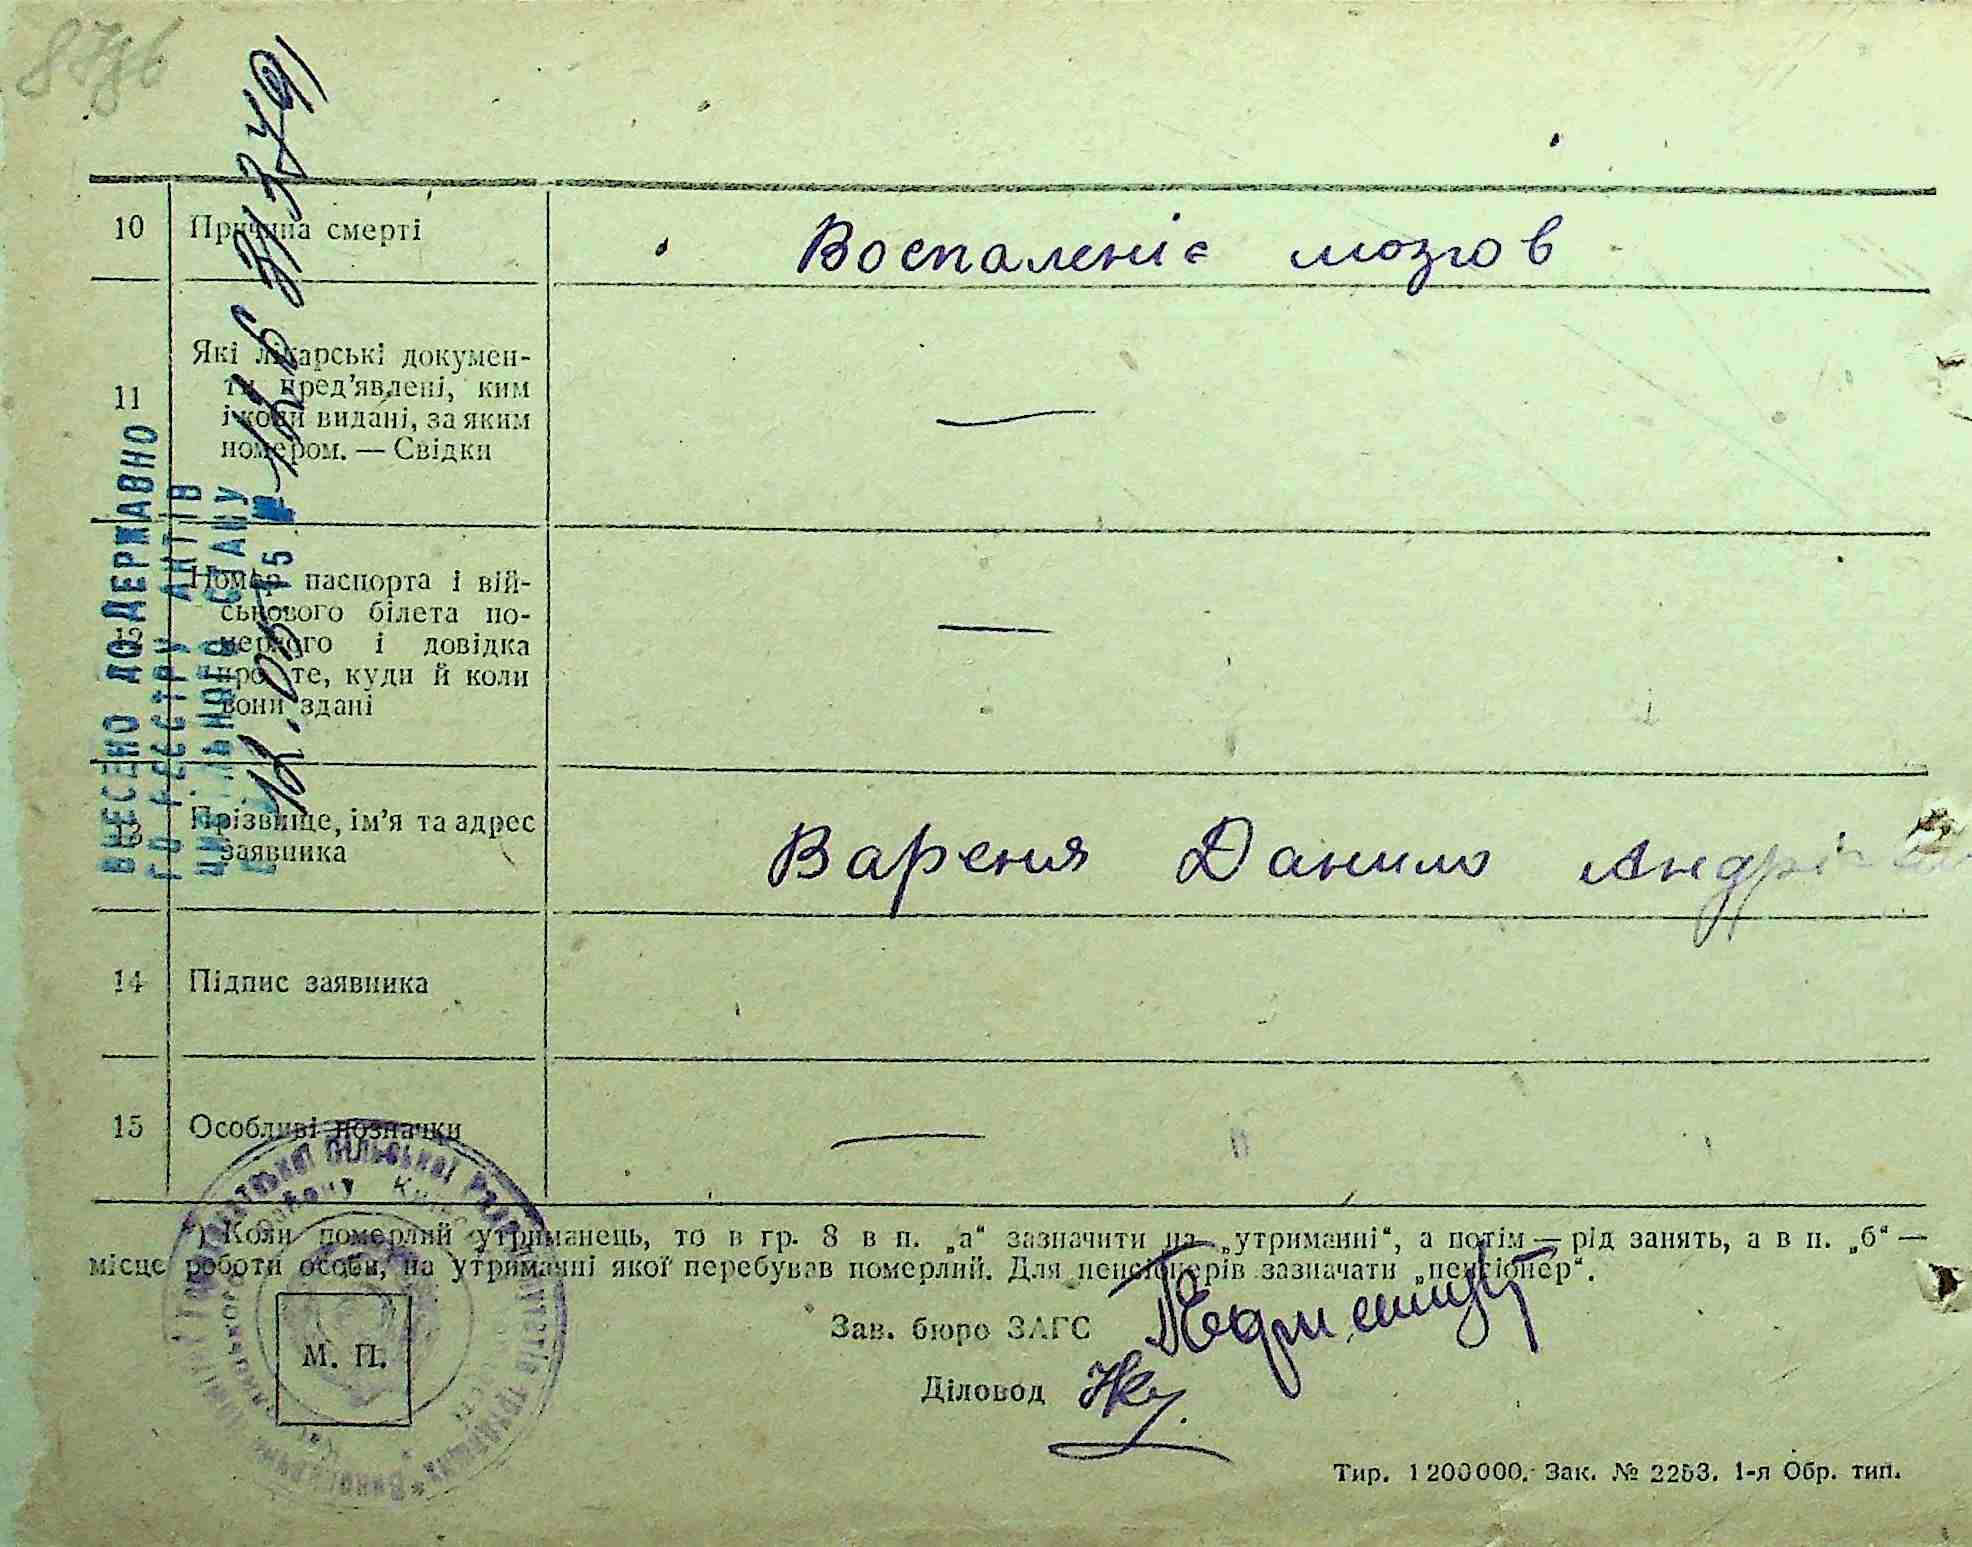 10 Причина смерті Воспаленіє мозгов
11 Які лікарські докумен-
ти пред'явлені, ким
і коли видані, за яким
номером. — Свідки —
12 Номер паспорта і вій-
ськового білета по-
мерлого і довідка
про те, куди й коли
вони здані —
13 Прізвище, ім'я та адрес
заявника Вареня Данило
14 Підпис заявника
15 Особливі позначки —
ВНЕСЕНО ДО ДЕРЖАВНО
ГО РЕЄСТРУ АКТІВ
ЦИВІЛЬНОГО СТАНУ
*) Коли померлий утриманець, то в гр. 8 в п. „а“ зазначити на „утриманні“, а потім — рід занять, а в п. „б“ —
місце роботи особи, на утриманні якої перебував померлий. Для пенсіонерів зазначати „пенсіонер“.
Зав. бюро ЗАГС
М. П.
Діловод
Тир. 1200000. Зак. № 2253. 1-я Обр. тип.